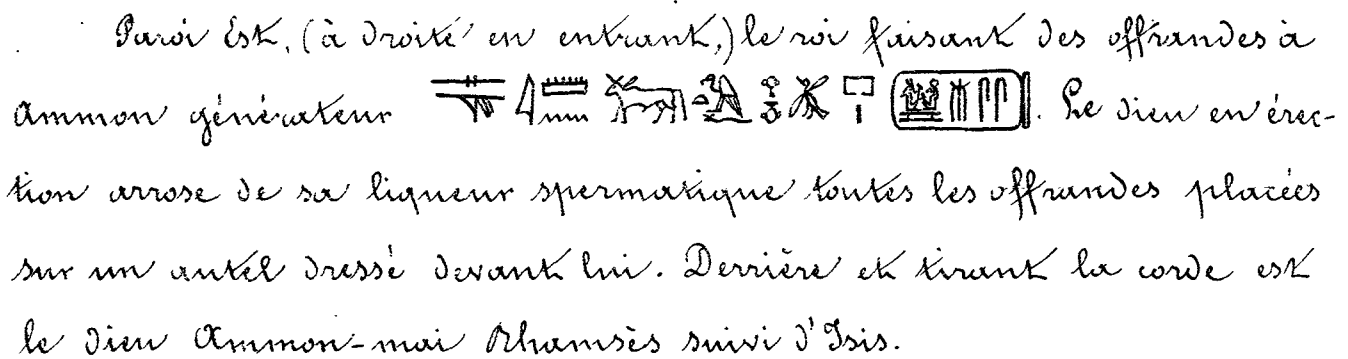 Paroi Est, (à droite en entrant,) le roi faisant des offrandes à
Ammon générateur . Le dieu en érec-
tion arrose de sa liqueur spermatique toutes les offrandes placées
sur un autel dressé devant lui. Derrière et tirant la corde est
le dieu Ammon-mai Rhamsès suivi d'Isis.